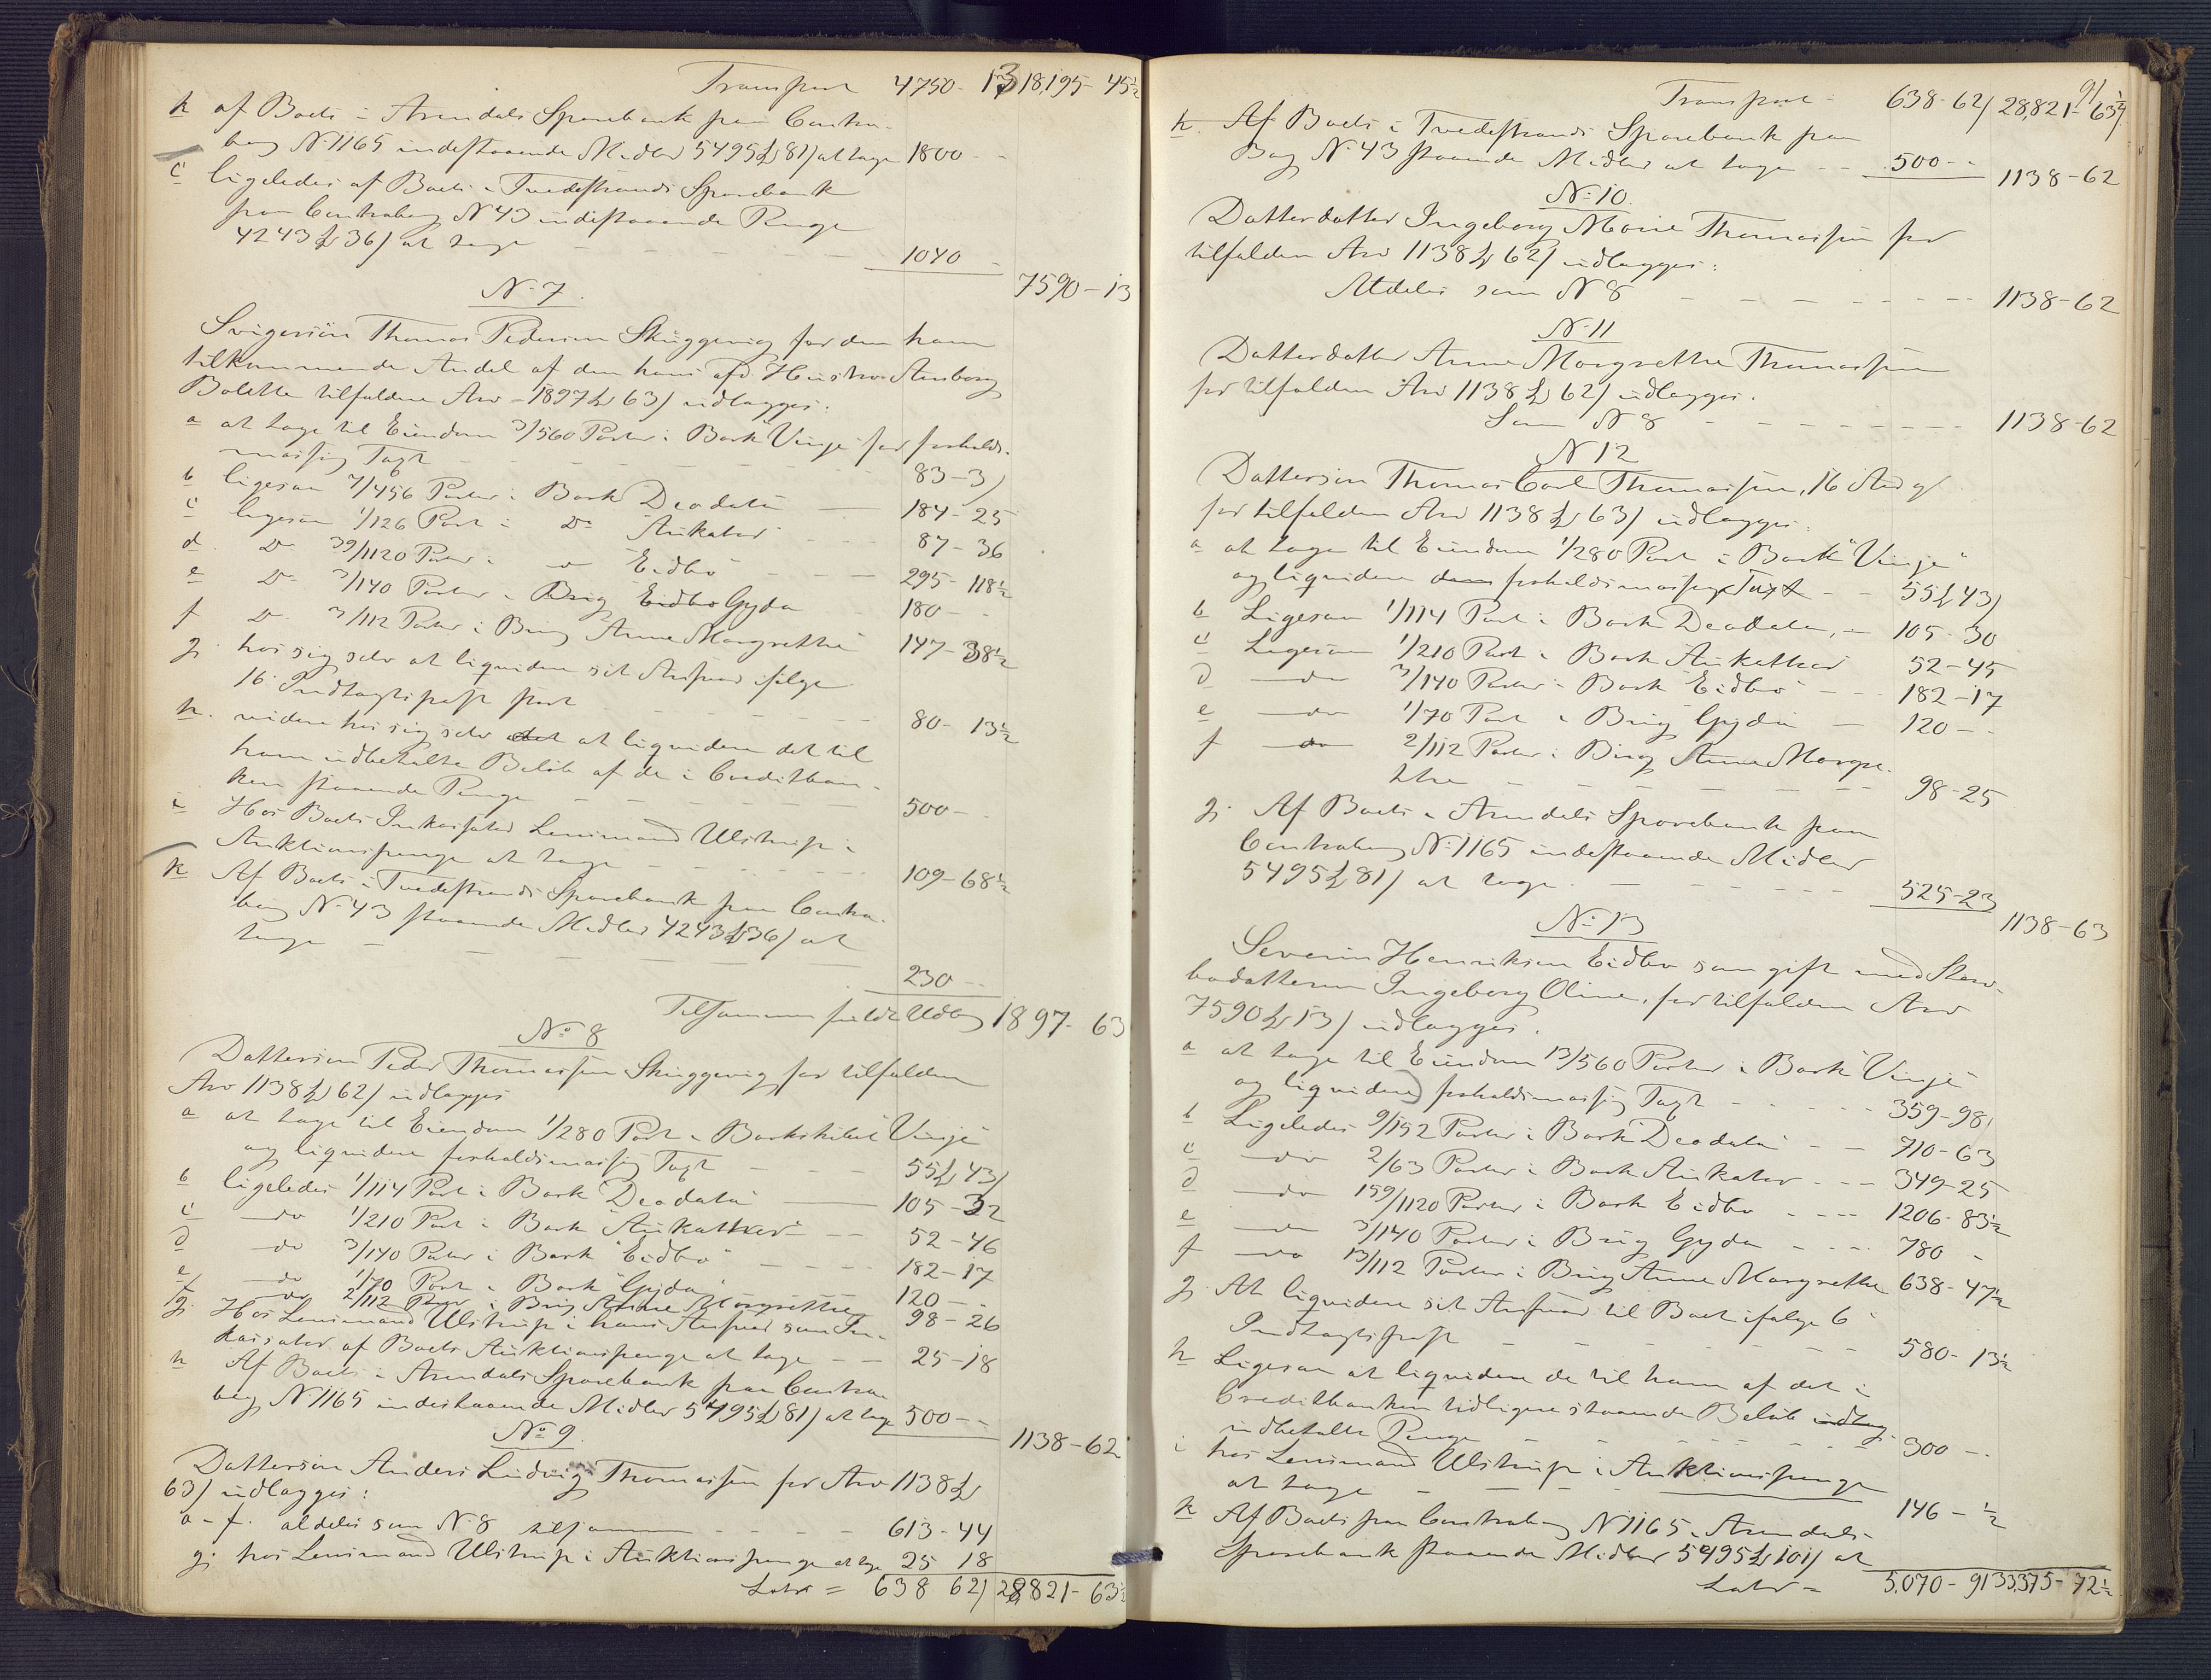 Transport 4750 - 13 18,195 - 45½
h af Boets i Arendals Sparebank paa Contra-
bog N: 1165 indestaaende Midler 5495 81 at tage 1800 - -
i ligeledes af Boets i Tvedestrands Sparebank
paa Contrabog N 43 indestaaende Penge
4243 36 at tage - - - 1040 -
7590 - 13
N: 7.
Svigersön Thomas Pedersen Skuggevig for den ham
tilkommende Andel af den hans afd. Hustru Asborg
Bolette tilfaldne Arv - 1897 63 udlægges:
a at tage til Eiendom 3/560 Parter i Bark Vinje for forholds-
mæssig Taxt - - - 83 - 3
b ligesaa 7/456 Parter i Bark Deodata - 184 - 25
c ligesaa 1/126 Part i Do Aukathor - - - 87 - 36
d. Do 39/1120 Parter i do Eidbo - - - 295 - 118½
e Do 3/140 Parter i Brig Eidbo Gyda 180 - -
f Do 3/112 Parter i Brig Anne Margrethe 147 - 38½
g. hos sig selv at liquidere sit Ansvar ifølge
16 Indtægtspost stort - - - 80 - 13½
h. videre hos sig selv at liquidere det til
ham indbetalte Beløb af de i Creditban-
ken staaende Penge - - - 500 - -
i Hos Boets Inkassator Lensmand Ulstrup i
Auktionspenge at tage - - - 109 - 68½
k Af Boets i Tvedestrands Sparebank paa Contra-
bog N: 43 staaende Midler 4243 36 at
tage - - - 230 - -
Tilsammen fuldt Udlæg 1897 - 63
No 8
Dattersön Peder Thomassen Skuggevig for tilfalden
Arv 1138 62 udlægges
a at tage til Eiendom 1/280 Part i Barkskibet Vinje
og liquidere forholdsmæssig Taxt - - - 55 43
b ligeledes 1/114 Part i Bark Deodata 105 - 32
c do 1/210 Part i Bark "Aukathor" - - 52 - 46
d do 3/140 Parter i Bark "Eidbo" - - - 182 - 17
e do 1/70 Part i Bark "Gyda" 120 - -
f do 2/112 Parter i Brig Anne Margrethe 98 - 26
g. Hos Lensmand Ulstrup i hans Ansvar som In-
kassator af Boets Auktionspenge at tage - - 25 - 18
h Af Boets i Arendals Sparebank paa Contra-
bog N: 1165 indestaaende Midler 5495 81 at tage 500 - -
1138 - 62
No 9.
Dattersön Anders Ludvig Thomassen for Arv 1138
63 udlægges:
a - f. aldeles som N: 8 tilsammen - - - 613 - 44
g: hos Lensmand Ulstrup i Auktionspenge at tage 25 18
Latus = 638 62 28,821 - 63½
91
Transport - 638 - 62 28,821 - 63½
h. Af Boets i Tvedestrands Sparebank paa
Bog N: 43 staaende Midler at tage - - 500 - -
1138 - 62
N: 10.
Datterdatter Ingeborg Marie Thomassen for
tilfalden Arv 1138 62 udlægges:
Aldeles som N 8 - - - 1138 - 62
N: 11
Datterdatter Anne Margrethe Thomassen
for tilfalden Arv 1138 62 udlægges.
Som N 8 - - - 1138 - 62
N 12
Dattersön Thomas Carl Thomassen, 16 Aar gl
for tilfalden Arv 1138 63 udlægges:
a at tage til Eiendom 1/280 Part i Bark "Vinje"
og liquidere dens forholdsmæssige Taxt - - 55 43
b Ligesaa 1/114 Part i Bark Deodata, - 105 - 30
c Ligesaa 1/210 Part i Bark Aukathor 52 - 45
d do 3/140 Parter i Bark "Eidbo" - - - 182 - 17
e do 1/70 Part i Brig Gyda - 120 - -
f do 2/112 Parter i Brig Anne Margre-
the - - - 98 - 25
g. Af Boets i Arendals Sparebank paa
Contrabog N: 1165 indestaaende Midler
5495 81 at tage. - - - 525 - 23
1138 - 63
No 13
Severin Henriksen Eidbo som gift med Stær-
bodatteren Ingeborg Oline, for tilfalden Arv
7590 13 udlægges.
a at tage til Eiendom 13/560 Parter i Bark Vinje
og liquidere forholdsmæssig Taxt - - - 359 - 98
b Ligeledes 9/152 Parter i Bark "Deodata" - - 710 - 63
c do 2/63 Parter i Bark Aukathor - - - 349 - 25
d do 159/1120 Parter i Bark Eidbo - - - 1206 - 83½
e do 3/140 Parter i Brig Gyda - - - 780 -
f do 13/112 Parter i Brig Anne Margrethe 638 - 47½
g. At liquidere sit Ansvar til Boet ifølge 6
Indtægtspost - - - 580 - 13½
h Ligesaa at liquidere de til ham af det i
Creditbanken tidligere staaende Beløb indtag
indbetalte Penge - - - 300 - -
i hos Lensmand Ulstrup i Auktionspenge
at tage - - - 146 - ½
k Af Boets paa Contrabog N 1165 i Arendals-
Sparebank staaende Midler 5495 101 at
Latus = 5,070 - 91 33,375 - 72½